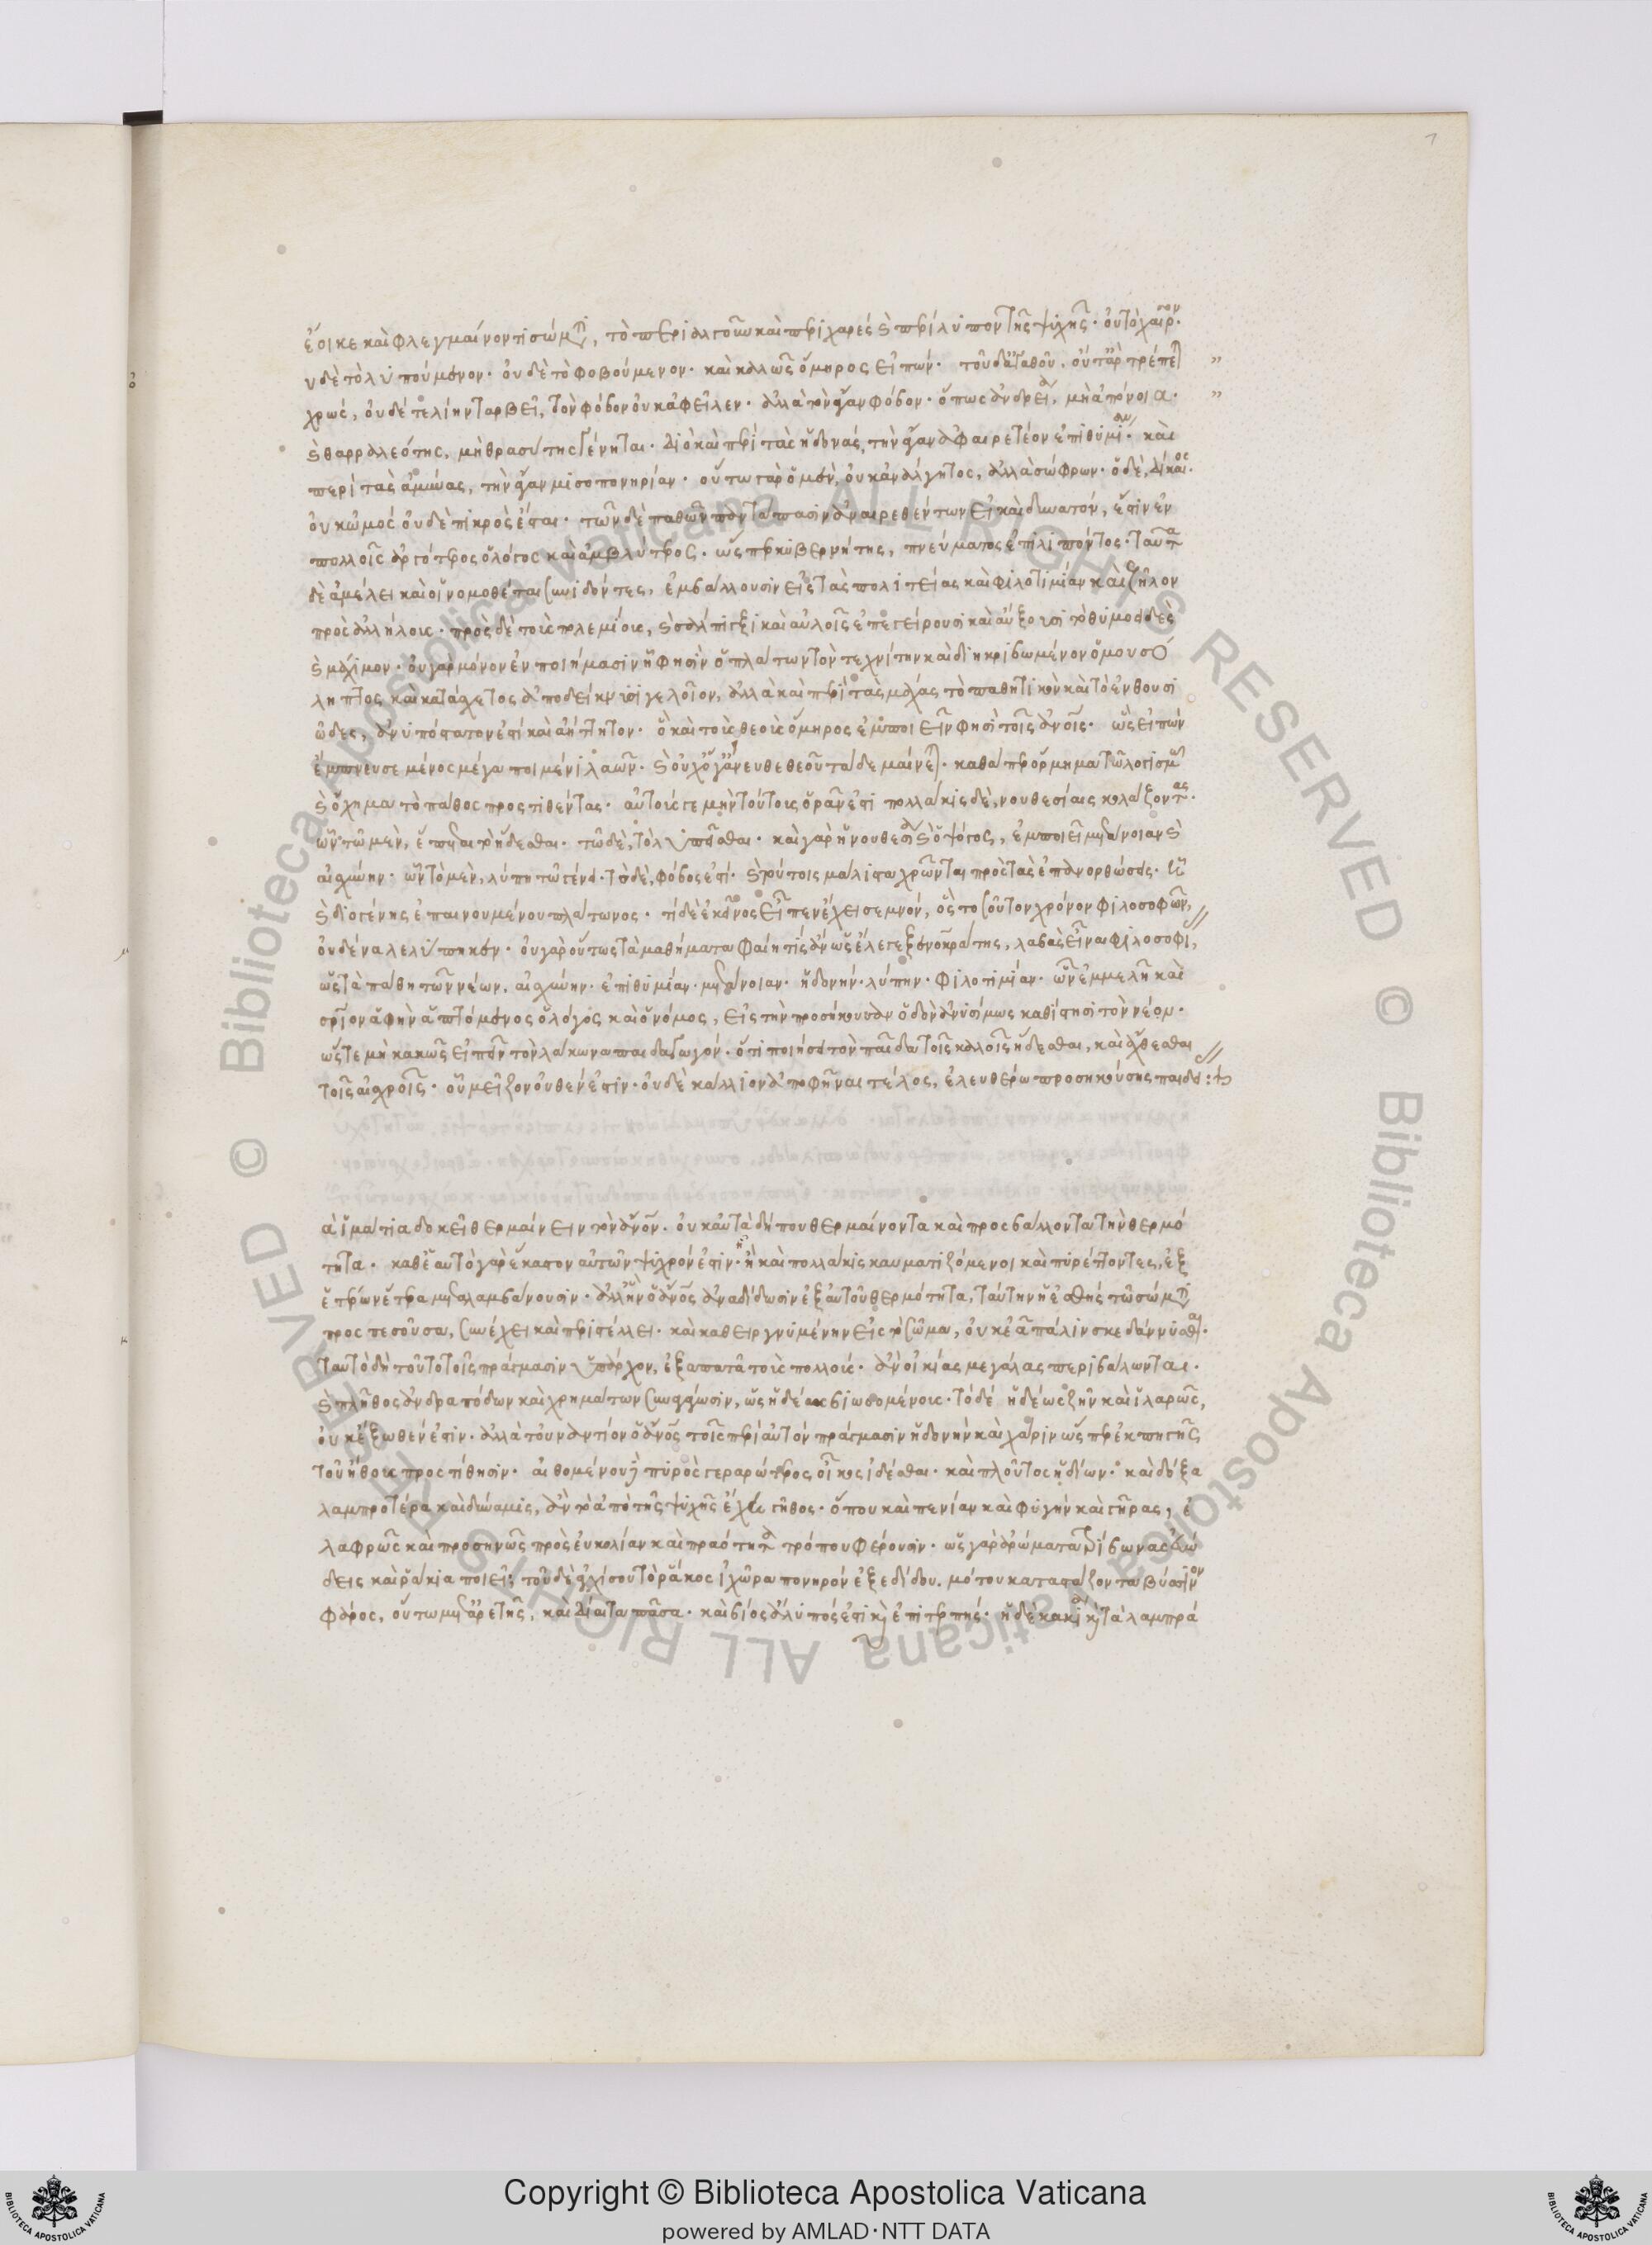 1
ἔοικε καὶ φλεγμαίνοντι σώματι, τὸ περιαλγοῦν καὶ περιχαρὲς καὶ περίλυπον τῆς ψυχῆς. οὐ τὸ χαῖρον.
οὐδὲ τὸ λυπούμενον. οὐδὲ τὸ φοβούμενον. καὶ καλῶς ὅμηρος εἰπών. τοῦ δ' ἀγαθοῦ, οὔτ' ἂρ τρέπεται
χρώς, οὐδέ τε λίην ταρβεῖ, τὸν φόβον οὐκ ἀφεῖλεν. ἀλλὰ τὸν ἄγαν φόβον. ὅπως ἀνδρεία, μὴ ἀπόνοια.
καὶ θαρραλεότης, μὴ θρασύτης γένηται. διὸ καὶ περὶ τὰς ἡδονάς, τὴν ἄγαν ἀφαιρετέον ἐπιθυμίαν. καὶ
περὶ τὰς ἀμύνας, τὴν ἄγαν μισοπονηρίαν. οὕτω γὰρ ὁ μέν, οὐκ ἀνάλγητος, ἀλλὰ σώφρων. ὁ δέ, δίκαιος.
οὐκ ὠμός οὐδὲ πικρὸς ἔσται. τῶν δὲ παθῶν παντάπασιν ἀναιρεθέντων εἰ καὶ δυνατόν, ἔστιν ἐν
πολλοῖς ἀργότερος ὁ λόγος καὶ ἀμβλύτερος. ὥσπερ κυβερνήτης, πνεύματος ἐπιλιπόντος. ταῦτα
δὲ ἀμέλει καὶ οἱ νομοθέται συνιδόντες, ἐμβάλλουσιν εἰς τὰς πολιτείας καὶ φιλοτιμίαν καὶ ζῆλον
πρὸς ἀλλήλους. πρὸς δὲ τοὺς πολεμίους, καὶ σάλπιγξι καὶ αὐλοῖς ἐπεγείρουσι καὶ αὔξουσι τὸ θυμοειδὲς
καὶ μάχιμον. οὐ γὰρ μόνον ἐν ποιήμασιν ἧ φησὶν ὁ πλάτων τὸν τεχνίτην καὶ διηκριβωμένον ὁ μουσό
ληπτος καὶ κατάσχετος ἀποδείκνυσι γελοῖον, ἀλλὰ καὶ περὶ τὰς μάχας τὸ παθητικὸν καὶ τὸ ἐνθουσι
ῶδες, ἀνυπόστατον ἐστὶ καὶ ἀήττητον. ὃ καὶ τοὺς θεοὺς ὅμηρος ἐμποιεῖν φησὶ τοῖς ἀνθρώποις. ὡς εἰπών
ἔμπνευσε μένος μέγα ποιμένι λαῶν. καὶ οὐχ ὅγ' ἄνευθε θεοῦ τάδε μαίνεται. καθάπερ ὅρμημα τῶ λογισμῶ
καὶ ὄχημα τὸ πάθος προστιθέντας. αὐτούς γε μὴν τούτους ὁρᾶν ἐστὶ πολλάκις δὲ, νουθεσίαις κολάζοντας.
ὧν τῶ μὲν, ἕπεται τὸ ἥδεσθαι. τῶ δὲ, τὸ λυπεῖσθαι. καὶ γὰρ ἡ νουθεσία καὶ ὁ ψόγος, ἐμποιεῖ μετάνοιαν καὶ
αἰσχύνην. ὧν τὸ μὲν, λύπη τῶ γένει. τὸ δὲ, φόβος ἐστί. καὶ τούτοις μάλιστα χρῶνται πρὸς τὰς ἐπανορθώσεις. ὡς
καὶ διογένης ἐπαινουμένου πλάτωνος. τί δὲ ἐκεῖνος εἶπεν ἔχει σεμνόν, ὃς τοσοῦτον χρόνον φιλοσοφῶν,
οὐδένα λελύπηκεν. οὐ γὰρ οὕτως τὰ μαθήματα φαίη τίς ἂν ὡς ἔλεγε ξενοκράτης, λαβὰς εἶναι φιλοσοφί,
ὡς τὰ πάθη τῶν νέων. αἰσχύνην. ἐπιθυμίαν. μετάνοιαν. ἡδονήν. λύπην. φιλοτιμίαν. ὧν ἐμμελῆ καὶ
σωτήριον ἁφὴν ἁπτόμενος ὁ λόγος καὶ ὁ νόμος, εἰς τὴν προσήκουσαν ὁδὸν ἀνυσίμως καθίστησι τὸν νέον.
ὥστε μὴ κακῶς εἰπεῖν τὸν λάκωνα παιδαγωγόν. ὅτι ποιήσει τὸν παῖδα τοῖς καλοῖς ἥδεσθαι, καὶ ἄχθεσθαι
τοῖς αἰσχροῖς. οὗ μεῖζον οὐθέν ἐστιν. οὐδὲ κάλλιον ἀποφῆναι τέλος, ἐλευθέρω προσηκούσης παιδείας:
ὰ ἱμάτια δοκεῖ θερμαίνειν τὸν ἄνθρωπον. οὐκ αὐτὰ δήπου θερμαίνοντα καὶ προσβάλλοντα τὴν θερμό
τητα. καθ' ἑαυτὸ γὰρ ἕκαστον αὐτῶν ψυχρόν ἐστιν. ἢ καὶ πολλάκις καυματιζόμενοι καὶ πυρέττοντες, ἐξ
ἑτέρων ἕτερα μεταλαμβάνουσιν. ἀλλ' ἣν ὁ ἄνθρωπος ἀναδίδωσιν ἐξ αὑτοῦ θερμότητα, ταύτην ἡ ἐσθὴς τῶ σώματι
προσπεσοῦσα, συνέχει καὶ περιστέλλει. καὶ καθειργνυμένην εἰς τὸ σῶμα, οὐκ ἐᾶ πάλιν σκεδάννυσθαι.
ταυτὸ δὴ τοῦτο τοῖς πράγμασιν ὑπάρχον, ἐξαπατᾶ τοὺς πολλούς. ἂν οἰκίας μεγάλας περιβάλωνται.
καὶ πλῆθος ἀνδραπόδων καὶ χρημάτων συναγάγωσιν, ὡς ἡδέως βιωσομένους. τὸ δὲ ἡδέως ζῆν καὶ ἱλαρῶς,
οὐκ ἔξωθέν ἐστιν. ἀλλὰ τοὐναντίον ὁ ἄνθρωπος τοῖς περὶ αὑτὸν πράγμασιν ἡδονὴν καὶ χάριν ὥσπερ ἐκ πηγῆς
τοῦ ἤθους προστίθησιν. αἰθομένου δὲ πυρὸς γεραρώτερος οἶκος ἰδέσθαι. καὶ πλοῦτος ἡδίων. καὶ δόξα
λαμπροτέρα καὶ δύναμις, ἂν τὸ ἀπὸ τῆς ψυχῆς ἔχη γῆθος. ὅπου καὶ πενίαν καὶ φυγὴν καὶ γῆρας, ἐ
λαφρῶς καὶ προσηνῶς πρὸς εὐκολίαν καὶ πραότητα τρόπου φέρουσιν. ὡς γὰρ ἀρώματα τρίβωνας εὐώ
δεις καὶ ῥάκια ποιεῖ; τοῦ δὲ ἀγχίσου τὸ ῥάκος ἰχῶρα πονηρόν ἐξεδίδου. μότου καταστάζοντα βύσσινον
φάρος, οὕτω μετ' ἀρετῆς, καὶ δίαιτα πᾶσα. καὶ βίος ἄλυπός ἐστι καὶ ἐπιτερπής. ἡ δὲ κακία καὶ τὰ λαμπρά
Copyright © Biblioteca Apostolica Vaticana
powered by AMLAD·NTT DATA